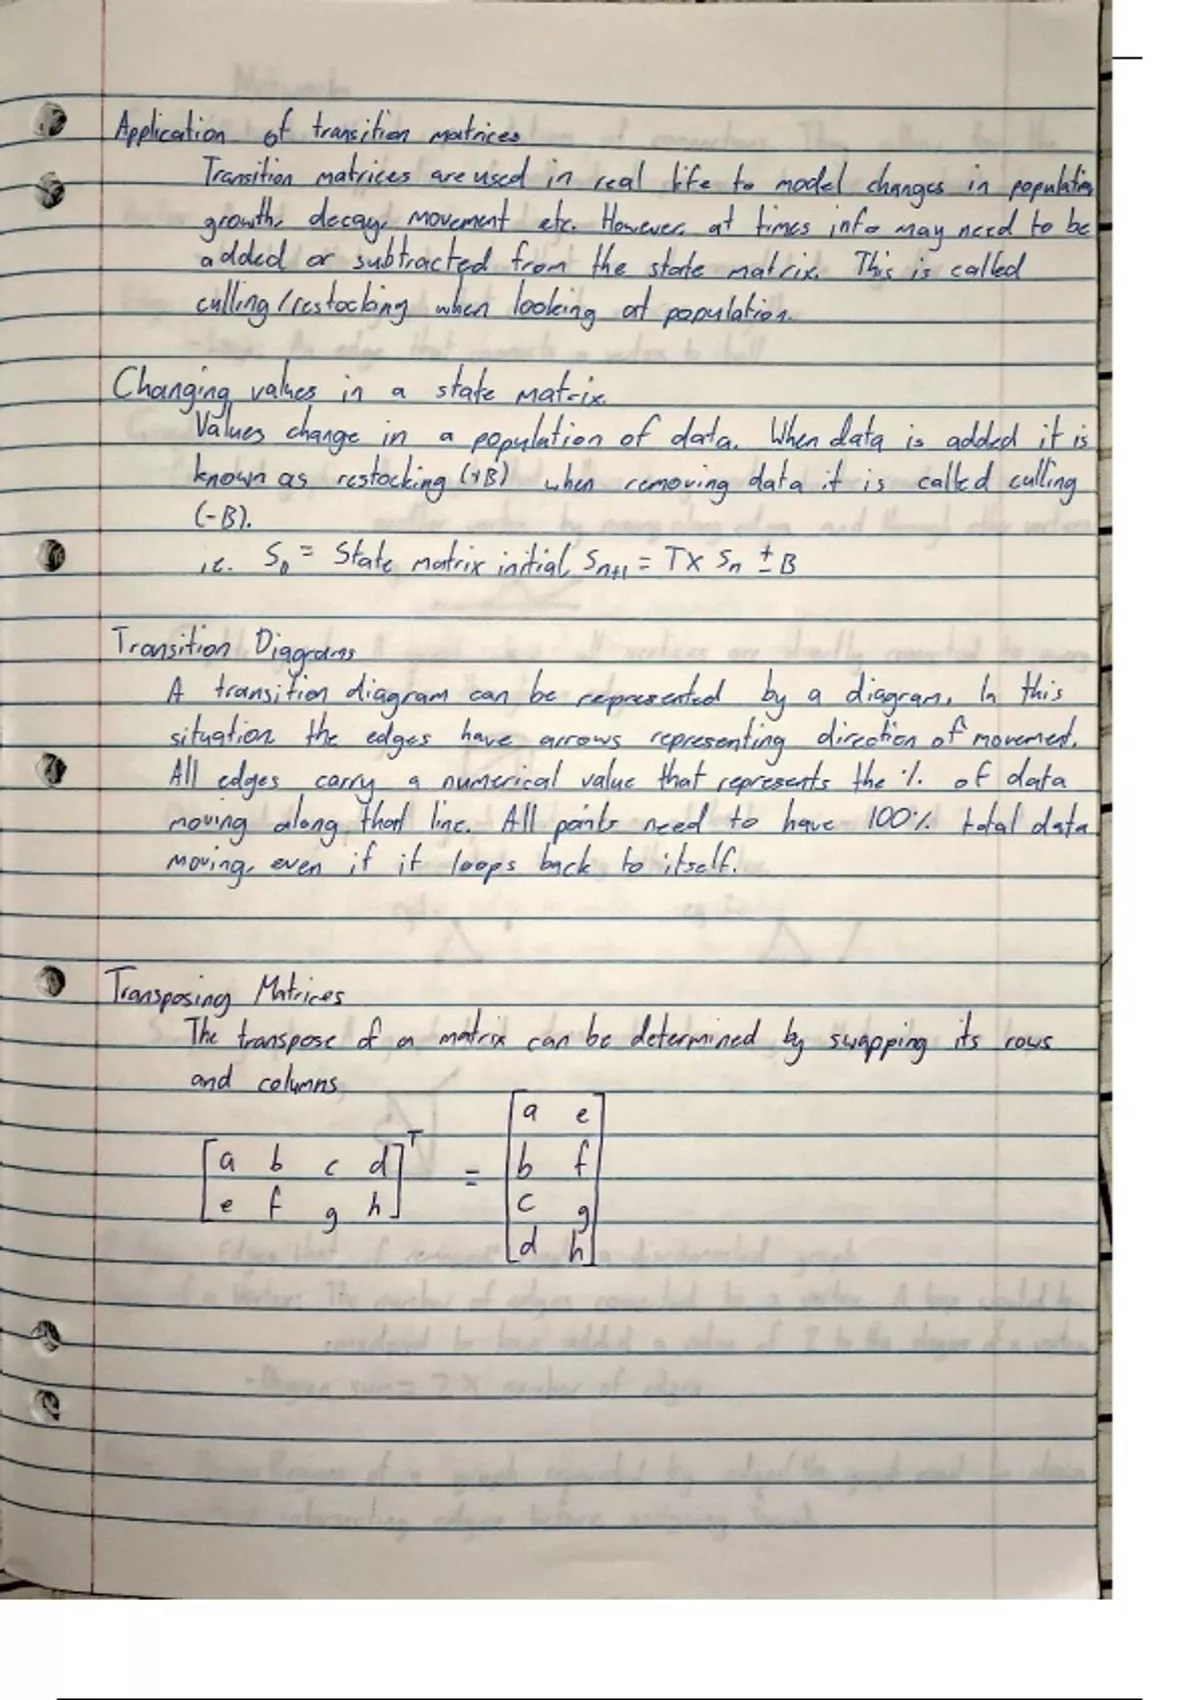 Application of transition matrices
Transition matrices are used in real life to model changes in population
growth, decay, movement etc. However, at times info may need to be
added or subtracted from the state matrix. This is called
culling/restocking when looking at population.
Changing values in a state matrix.
Values change in a population of data. When data is added it is
known as restocking (+B) when removing data it is called culling
(-B).
i.e. S₀ = State matrix initial, Sₙ₊₁ = T× Sₙ ± B
Transition Diagrams
A transition diagram can be represented by a diagram. In this
situation the edges have arrows representing direction of movement.
All edges carry a numerical value that represents the % of data
moving along that line. All points need to have 100% total data
moving, even if it loops back to itself.
Transposing Matrices
The transpose of a matrix can be determined by swapping its rows
and columns
[a b c d
e f g h]ᵀ = [a e
b f
c g
d h]